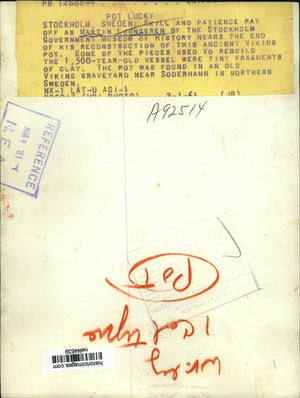 PB 1268644
POT LUCKY
STOCKHOLM, SWEDEN: SKILL AND PATIENCE PAY
OFF AS MARTIN LJUNGREN OF THE STOCKHOLM
GOVERNMENT MUSEUM OF HISTORY NEARS THE END
OF HIS RECONSTRUCTION OF THIS ANCIENT VIKING
POT. SOME OF THE PIECES USED TO REBUILD
THE 1,500-YEAR-OLD VESSEL WERE TINY FRAGMENTS
OF CLAY. THE POT WAS FOUND IN AN OLD
VIKING GRAVEYARD NEAR SODERHAMN IN NORTHERN
SWEDEN.
NX-1 LAT-U ASI-1
CREDIT (UPI PHOTO) 3-1-61 (JB)
A92514
REFERENCE
MAR 9 '61
N.E.A.
POT
1 Col
historicimages.com
nef44639